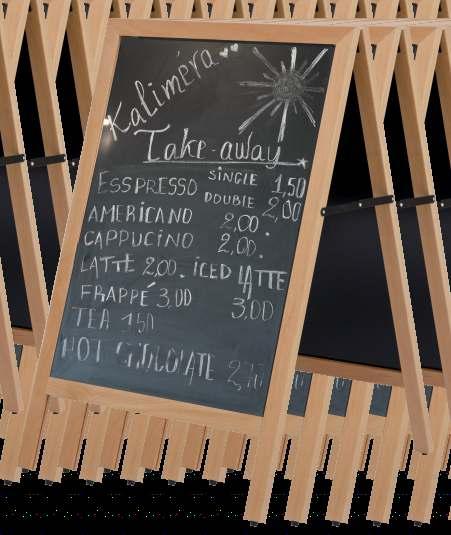 Kaliméra
Take-away
ESSPRESSO SINGLE 1,50
DOUBLE 2,00
AMERICANO 2,00
CAPPUCINO 2,00.
LATTE 2,00. ICED LATTE
FRAPPÉ 3,00 3,00
TEA 150
HOT CHOCOLATE